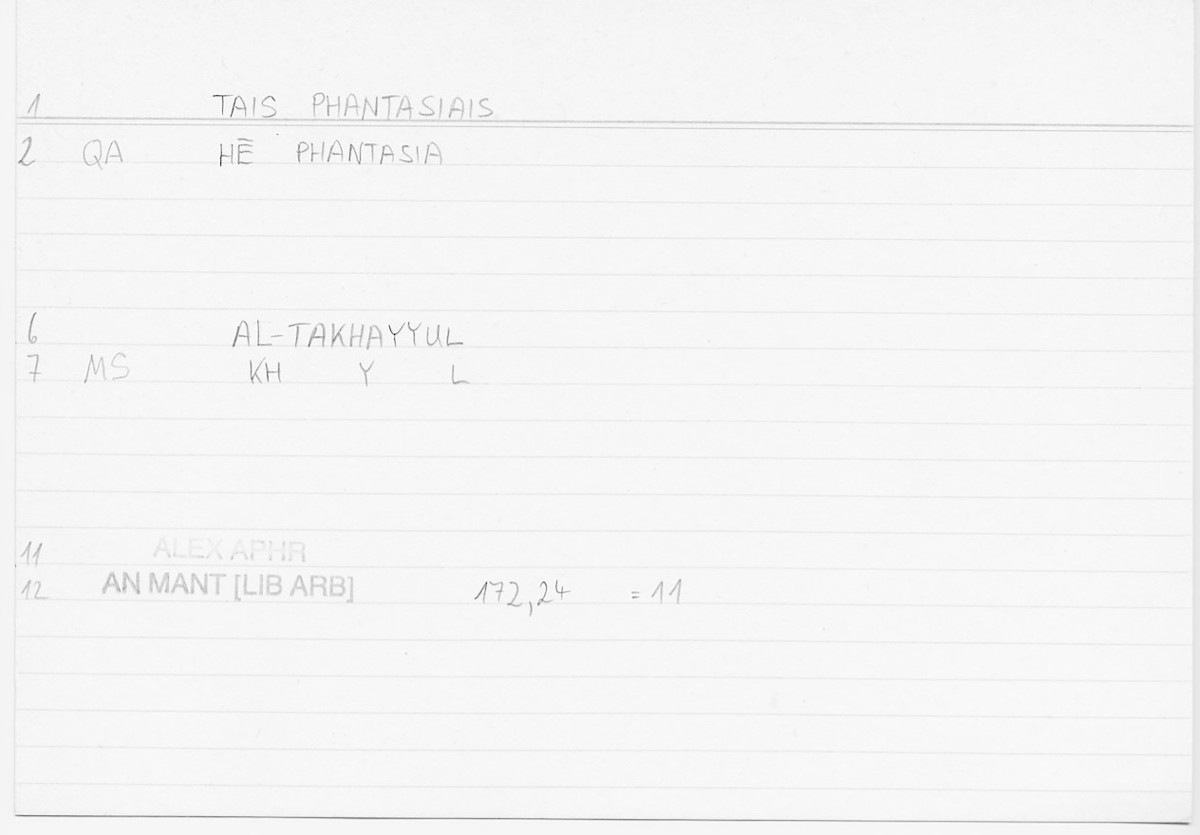 1 TAIS PHANTASIAIS
2 QA HĒ PHANTASIA
6 AL-TAKHAYYUL
7 MS KH Y L
11 ALEX APHR
12 AN MANT [LIB ARB] 172,24 = 11